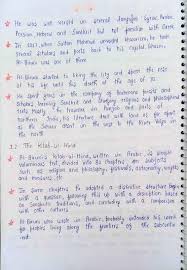 He was well versed in several languages Syriac, Arabic
Persian, Hebrew and Sanskrit but not familiar with Greek
In 1017, when Sultan Mahmud invaded Khwarezm, he took
several scholars and poets back to his capital Ghazni.
Al-Biruni was one of them
Al-Biruni started to liking the city and spent the rest
of his life until his death at the age of
He spent years in the company of Brahmana priests and
Scholars learning Sanskrit and studying religious and philosophical
texts mostly he travelled in Punjab and parts of
northern India, his literature
as the
the Kitab-ul-Hind
Al-Biruni's Kitab-ul-Hind, written in Arabic, is simple
voluminous text divided into 80 chapters on subjects
such as religion and philosophy, festivals, astronomy, weights and
measures etc.
In each chapter, he adopted a distinctive structure begin
with a question, following this up with a description based
on Sanskritic traditions, and concluding with a comparison
with other cultures
Al-Biruni, who wrote in Arabic, probably intended his work
for peoples living along the frontiers of the subcontinent